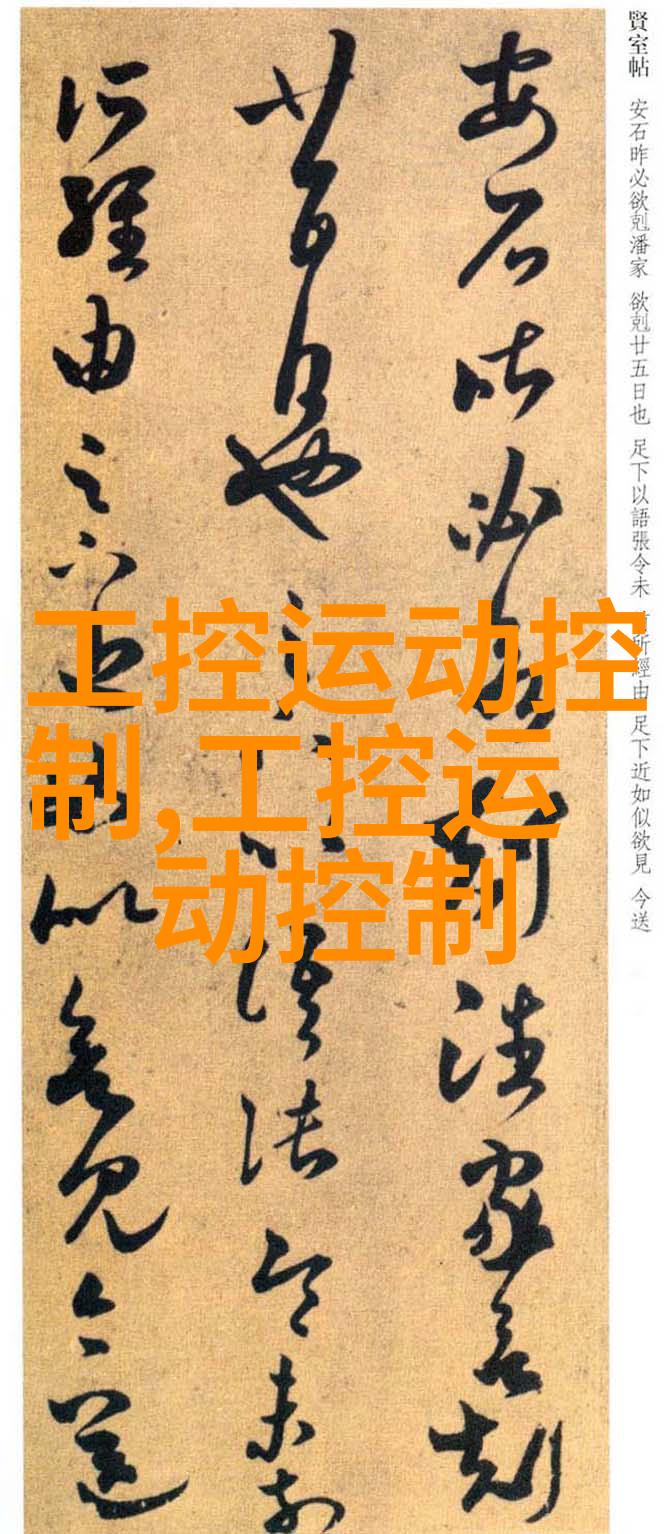 賢室帖 安石昨必欲剋潘家 欲剋廿五日也 足下以語張令未 所經由足下近如似欲見 今送
安石昨必欲剋潘家欲剋
廿五日也足下以語張令未前
所經由足下近如似欲見今送
工控运动控
制,工控运
动控制